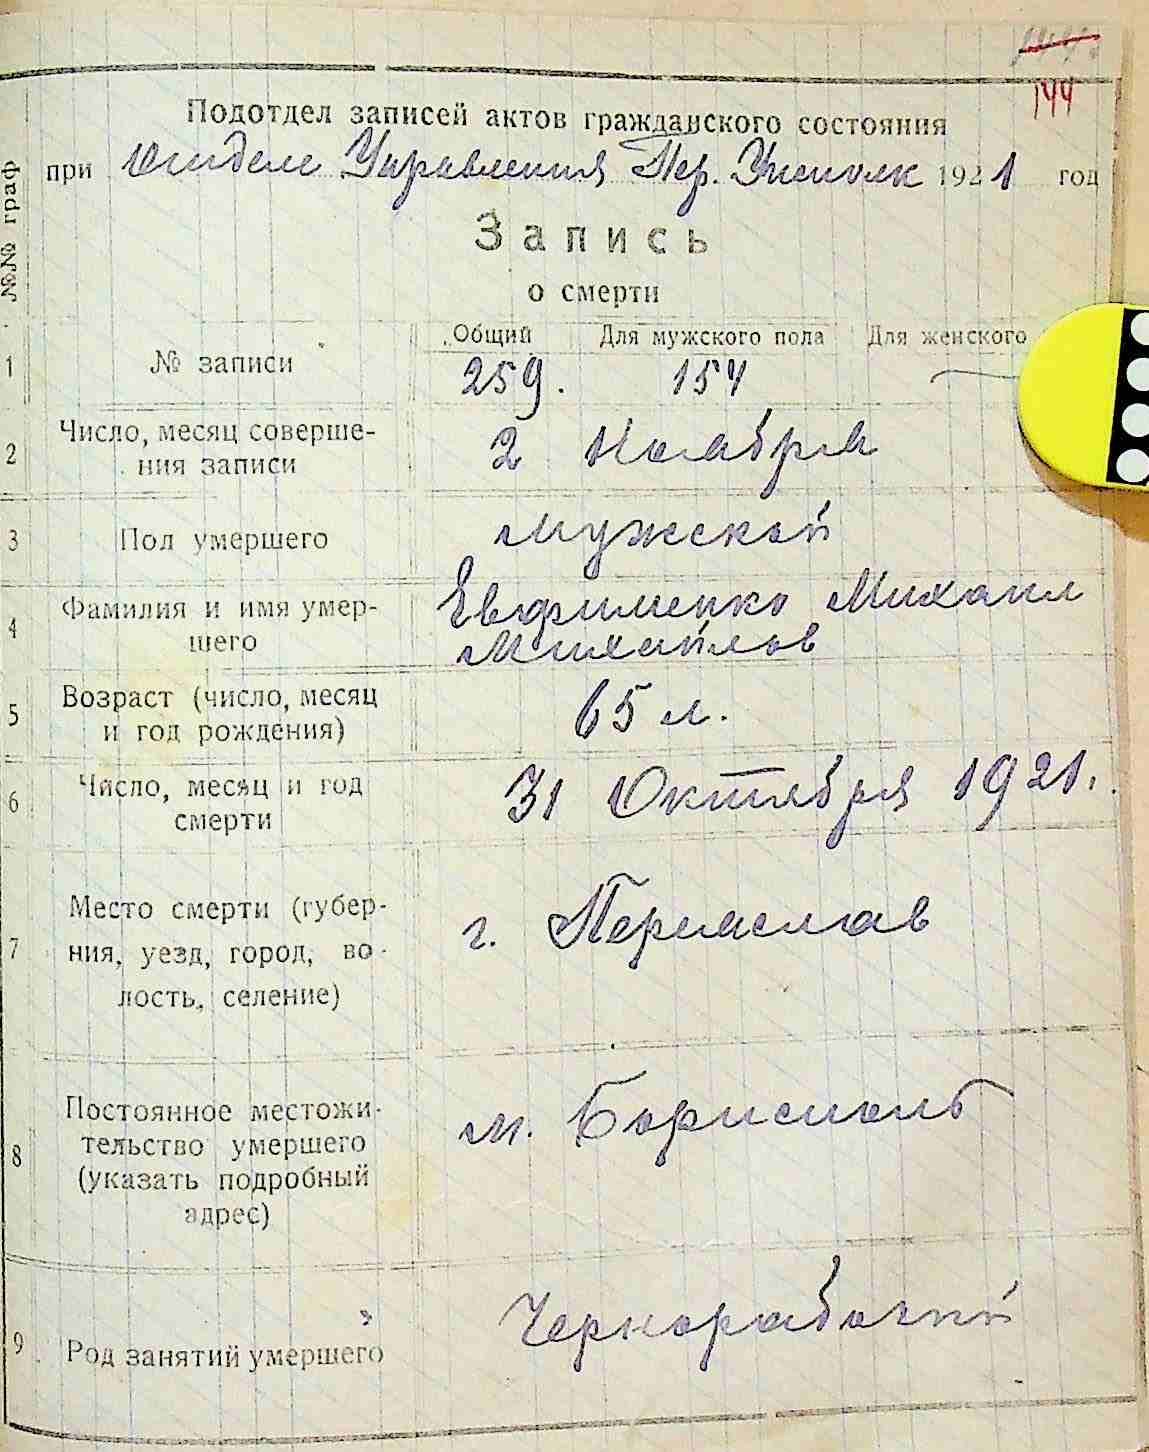 144
Подотдел записей актов гражданского состояния
при отделе Управления Пер. Уисполк 1921 год
№№ граф
Запись
о смерти
Общий Для мужского пола Для женского
1 № записи 259. 154
2 Число, месяц соверше-
ния записи 2 Ноября
3 Пол умершего мужской
4 Фамилия и имя умер-
шего Евфименко Михаил
Михайлов
5 Возраст (число, месяц
и год рождения) 65 л.
6 Число, месяц и год
смерти 31 Октября 1921.
7 Место смерти (губер-
ния, уезд, город, во-
лость, селение) г. Переяслав
8 Постоянное местожи-
тельство умершего
(указать подробный
адрес) м. Борисполь
9 Род занятий умершего Чернорабочий